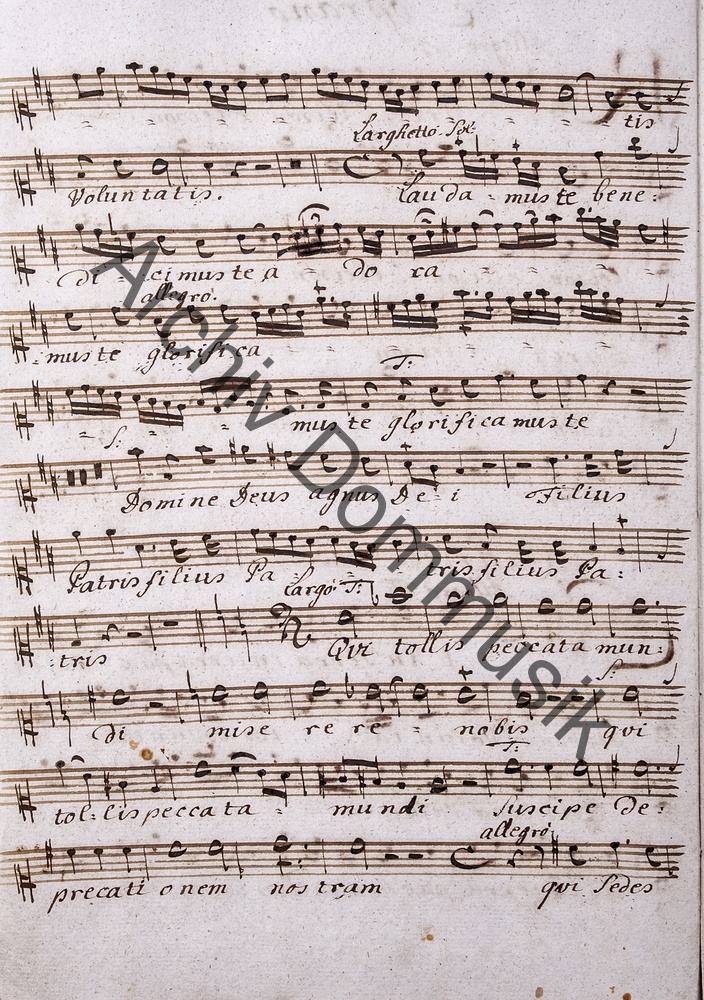 tis
Larghetto. Sol:
Voluntatis. lauda - muste bene:
di - cimus te a - do ra
allegro.
muste glorifica
T:
muste glorifica muste
S:
Domine Deus agnus De - i Filius
Patris filius Pa - tris filius Pa:
Largo T:
:tris Qui tollis peccata mun:
S:
di mise re re - nobis qui
T:
tol:lis peccata - mundi Suscipe de:
allegro
precati onem nostram qui Sedes
Archiv Dommusik